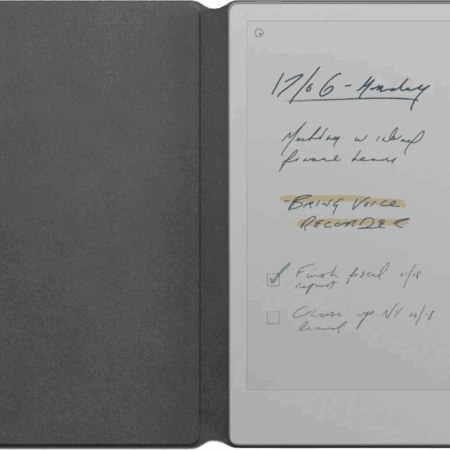 17/06 - Monday
Meeting w
finance team
-BRING VOICE
RECORDER
Finish fiscal
report
up NY
travel